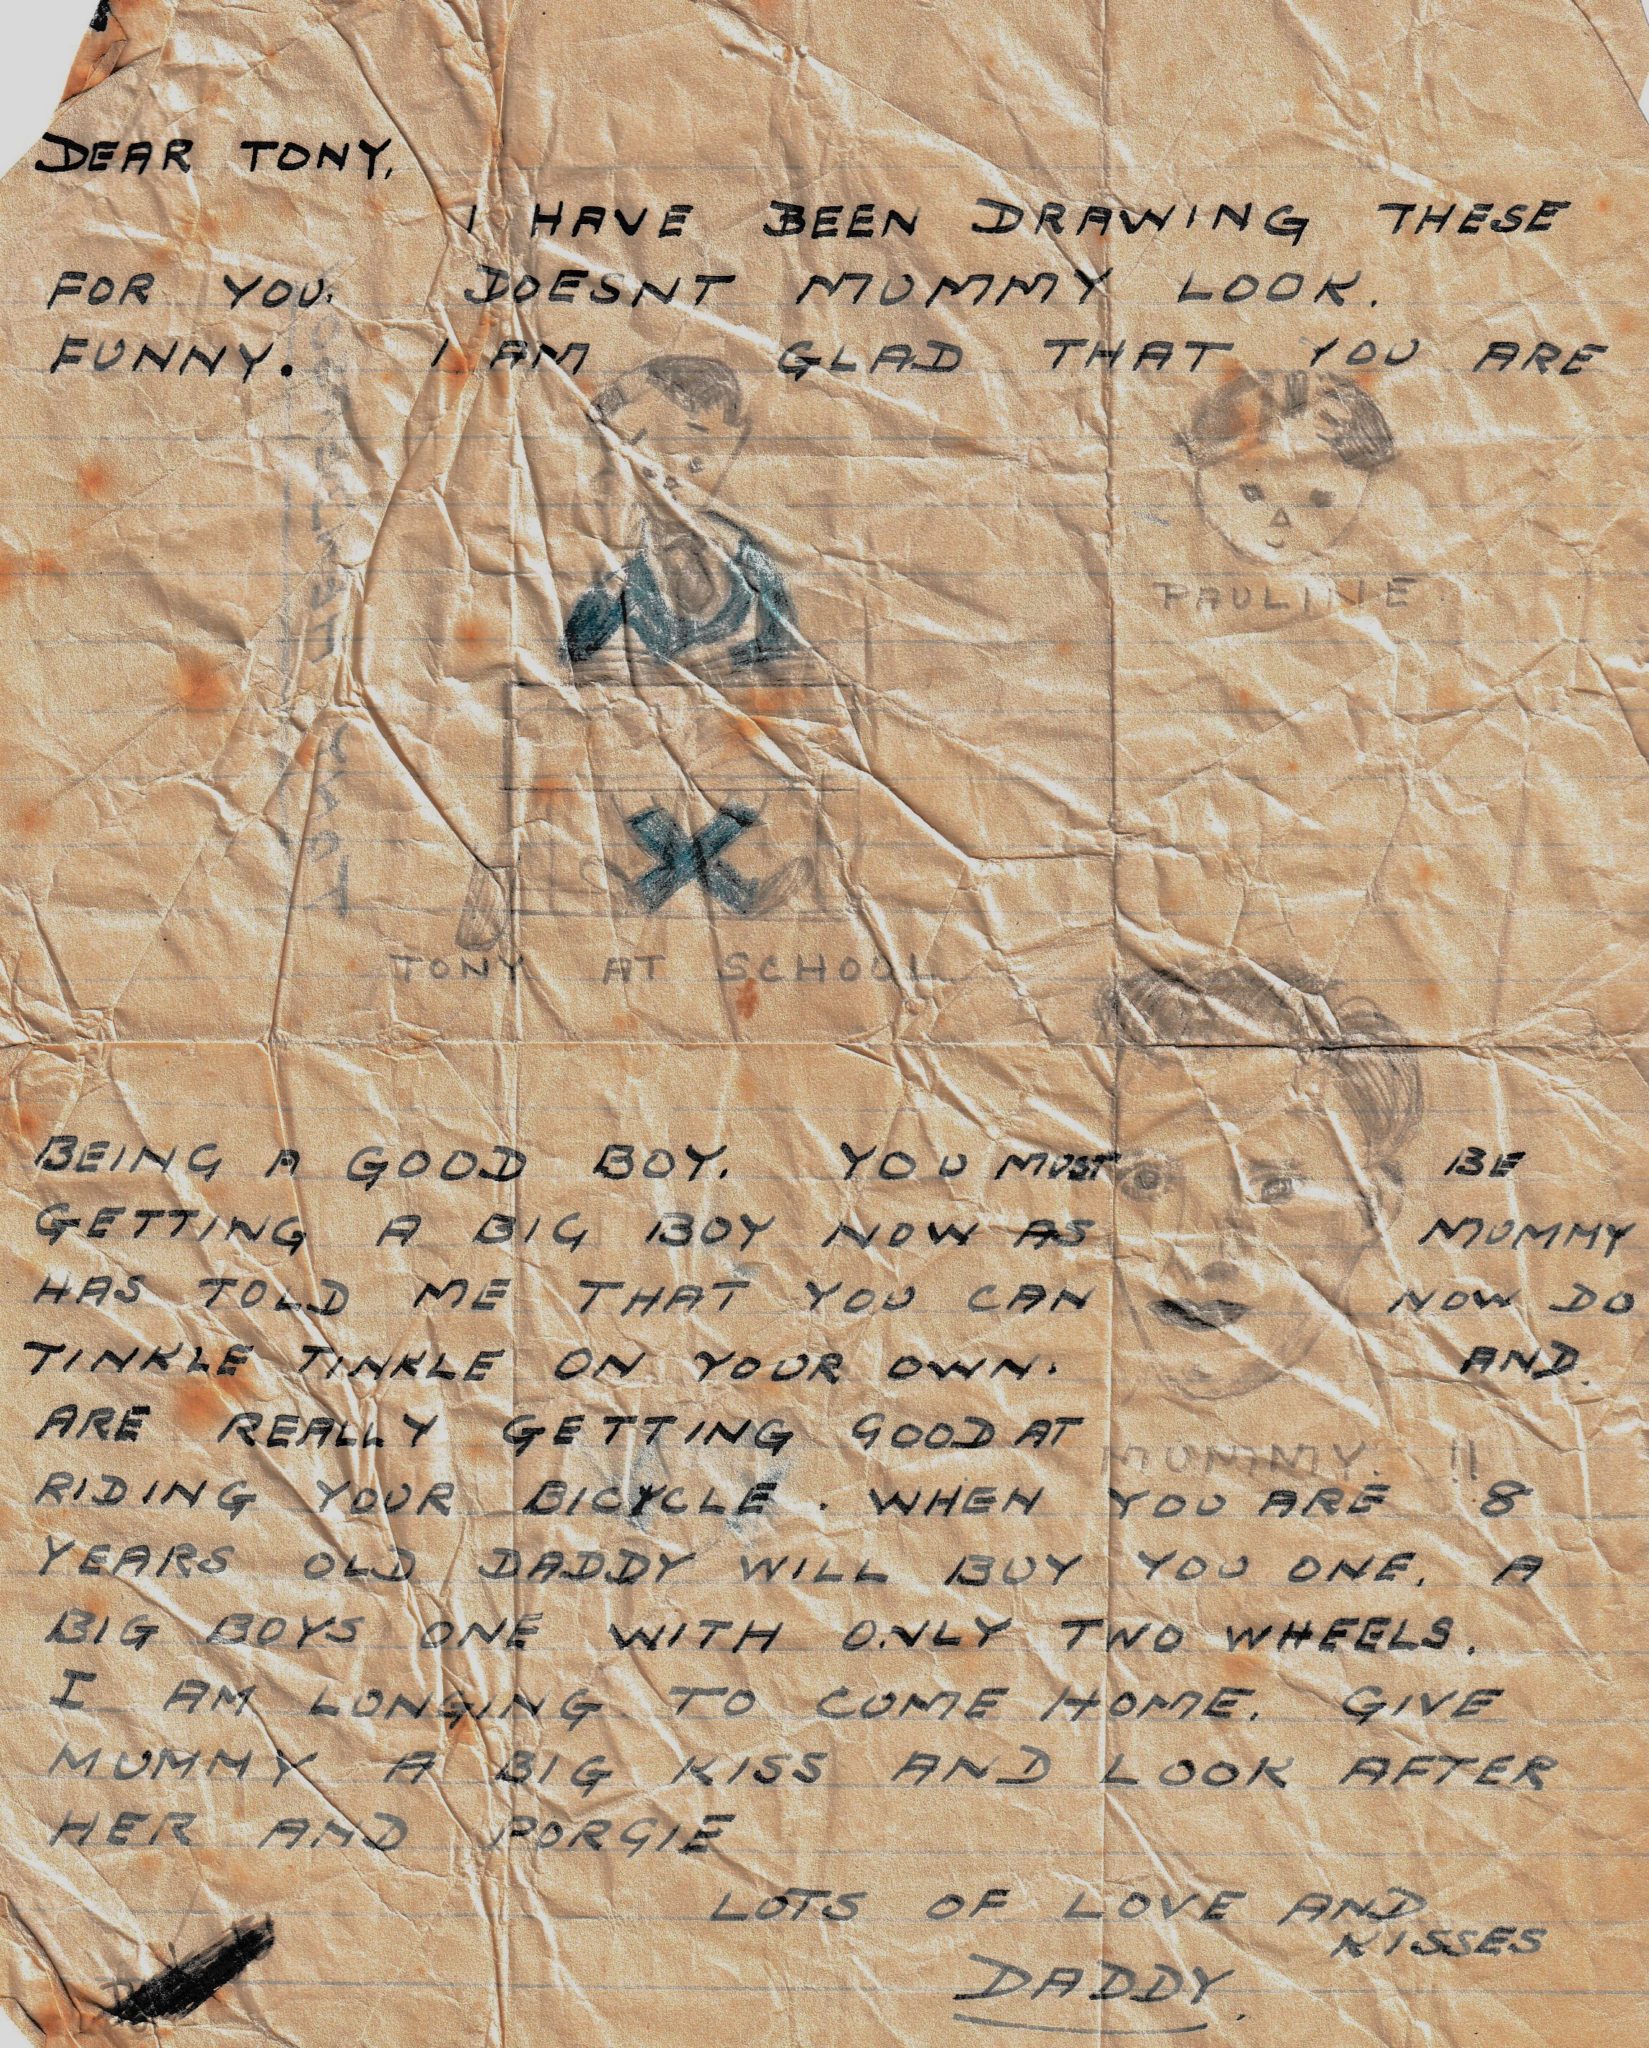 DEAR TONY,
I HAVE BEEN DRAWING THESE
FOR YOU. DOESNT MUMMY LOOK.
FUNNY. I AM GLAD THAT YOU ARE
PAULINE.
TONY AT SCHOOL
BEING A GOOD BOY. YOU MUST BE
GETTING A BIG BOY NOW AS MUMMY
HAS TOLD ME THAT YOU CAN NOW DO
TINKLE TINKLE ON YOUR OWN. AND.
ARE REALLY GETTING GOOD AT
MUMMY. !!
RIDING YOUR BICYCLE. WHEN YOU ARE 8
YEARS OLD DADDY WILL BUY YOU ONE. A
BIG BOYS ONE WITH ONLY TWO WHEELS.
I AM LONGING TO COME HOME. GIVE
MUMMY A BIG KISS AND LOOK AFTER
HER AND PORGIE
LOTS OF LOVE AND
KISSES
DADDY.